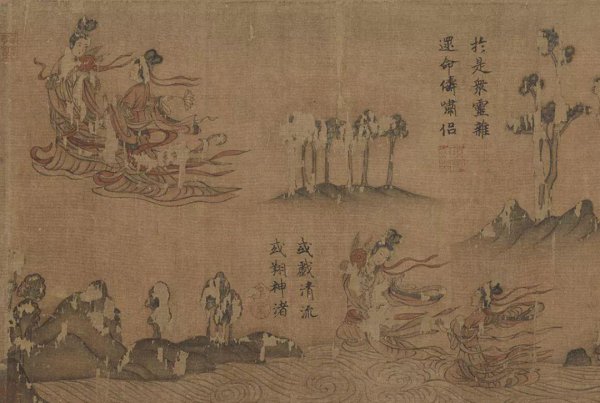 於是衆靈雜
遝命儔嘯侶
或戲清流
或翔神渚